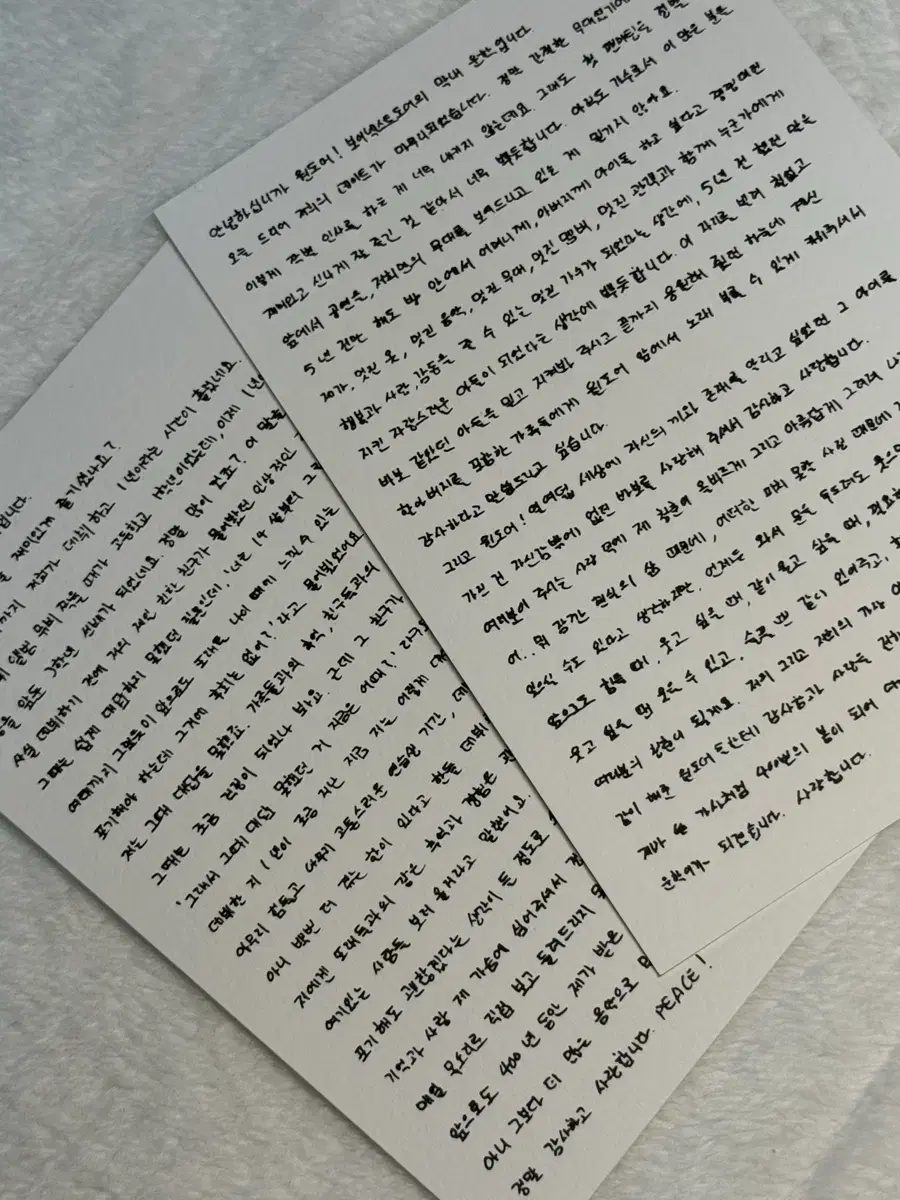 안녕하십니까 원도어! 보이넥스트도어의 막내 운학입니다.
오늘 드디어 저희의 데이트가 마무리되었습니다. 정말 간절한 무대였기에
이렇게 작별 인사를 하는 게 너무 내키지 않는데요. 그래도 첫 팬미팅을 정말
재미있고 신나게 잘 즐긴 것 같아서 너무 뿌듯합니다. 아직도 가수로서 이 많은 분들
앞에서 공연을, 저희만의 무대를 보여드리고 있는 게 믿기지 않아요.
5년 전만 해도 방 안에서 어머니께, 아버지께 아이돌 하고 싶다고 펑펑대던
제가, 멋진 옷, 멋진 음악, 멋진 무대, 멋진 멤버, 멋진 관객과 함께 누군가에게
행복과 사랑, 감동을 줄 수 있는 멋진 가수가 되었다는 생각에, 5년 전 했던 말을
지킨 자랑스러운 아들이 되었다는 생각에 뿌듯합니다. 이 자리를 빌려 철없고
바보 같았던 아들을 믿고 지켜봐 주시고 끝까지 응원해 줬던 하늘에 계신
할아버지를 포함한 가족들에게 원도어 앞에서 노래 부를 수 있게 키워주셔서
감사하다고 말씀드리고 싶습니다.
그리고 원도어! 열여덟 세상에 자신의 끼와 존재를 알리고 싶었던 그 아이를
가진 건 자신감밖에 없던 바보를 사랑해 주셔서 감사하고 사랑합니다.
여러분이 주는 사랑 덕에 제 청춘이 올바르게 그리고 아름답게 그려져 나
어.. 뭐 각자 현실의 삶 때문에, 어떠한 피치 못할 사정 때문에
있으실 수도 있다고 생각하지만, 언제든 와서 문을 두드려도 웃으며
앞으로도 힘들 때, 웃고 싶을 때, 같이 울고 싶을 때, 필요할
웃고 싶을 땐 웃을 수 있고, 슬플 땐 같이 있어주고,
여러분의 청춘이 될게요. 저의 그리고 저희의 가장
같이 해준 원도어 든든데 감사함과 사랑을 전하
제가 쓴 가사처럼 400번의 봄이 되어
운학이가 되겠습니다. 사랑합니다.
입니다.
재미있게 즐기셨나요?
까지 저희가 데뷔하고 1년이라는 시간이 흘렀네요.
앨범 무비 찍을 때가 고등학교 1학년이었는데, 이제 1년
을 앞둔 3학년 선배가 되었네요. 정말 많이 컸죠? 이 말을
사실 데뷔하기 전에 저의 제일 친한 친구가 물어봤던 인상적인
그때는 쉽게 대답하지 못했던 질문인데, '너는 14살부터 그
여태까지 그랬듯이 앞으로도 또래로 나이 때에 느낄 수 있는
포기해야 하는데 그거에 후회는 없어?'라고 물어봤었어요
저는 그때 대답을 못했죠. 가족들과의 추억, 친구들과의
그때는 조금 걱정이 되었나 봐요. 근데 그 친구가
'그래서 그때 대답 못했던 거 지금은 어때?' 라구
데뷔한 지 1년이 조금 지난 지금 저는 이렇게 대
아무리 힘들고 아무리 고통스러운 연습생 기간, 데
아니 몇번 더 겪는 한이 있다고 한들 데뷔
저에게 또래들과의 같은 추억과 경험은
여기있는 사람들 보러 올거라고 말했어요.
포기해도 괜찮겠다는 생각이 든 정도로
기억과 사랑 제 가슴에 심어주셔서
매일 목소리로 직접 보고 들려드리지
앞으로도 400년 동안 제가 받은
아니 그보다 더 많은 음악으로
정말 감사하고 사랑합니다. PEACE!